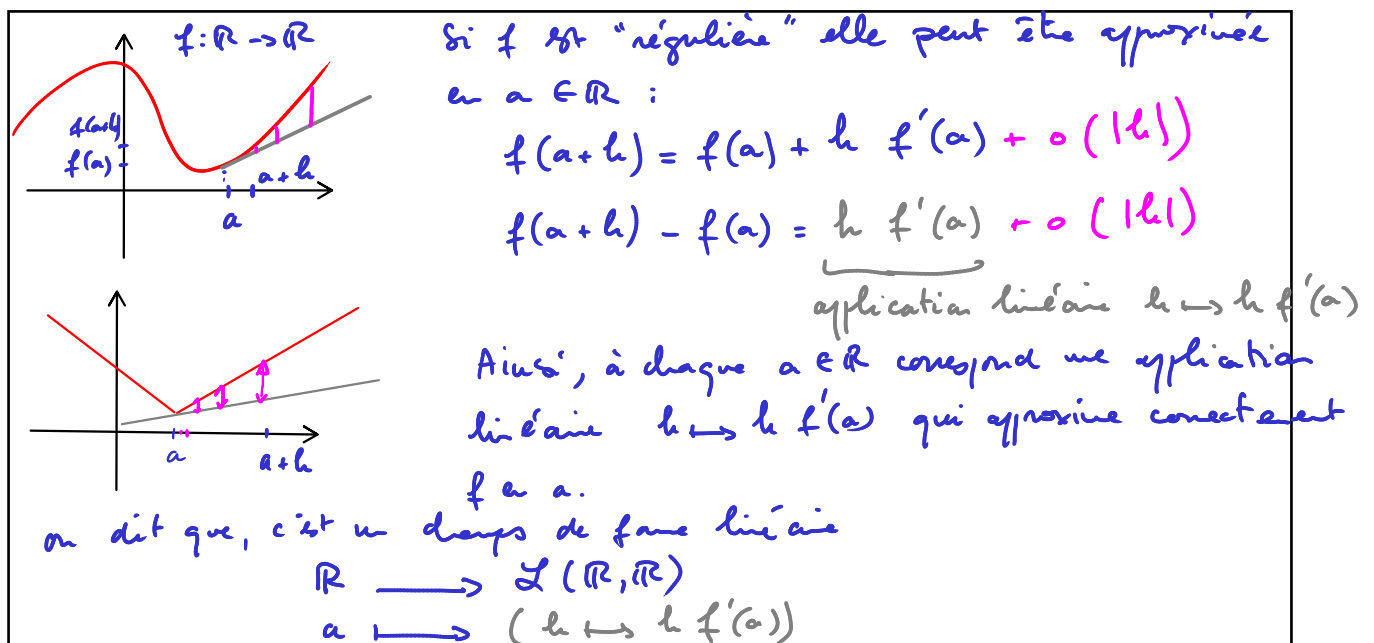 f : ℝ -> ℝ
Si f est "régulière" elle peut être approximée
en a ∈ ℝ :
f(a+h) = f(a) + h f'(a) + o(|h|)
f(a+h) - f(a) = h f'(a) + o(|h|)
application linéaire h ↦ h f'(a)
f(a+h)
f(a)
a+h
a
Ainsi, à chaque a ∈ ℝ correspond une application
linéaire h ↦ h f'(a) qui approxime correctement
f en a.
a
a+h
on dit que, c'est un champs de forme linéaire
ℝ ⟶ ℒ(ℝ,ℝ)
a ⟼ (h ↦ h f'(a))